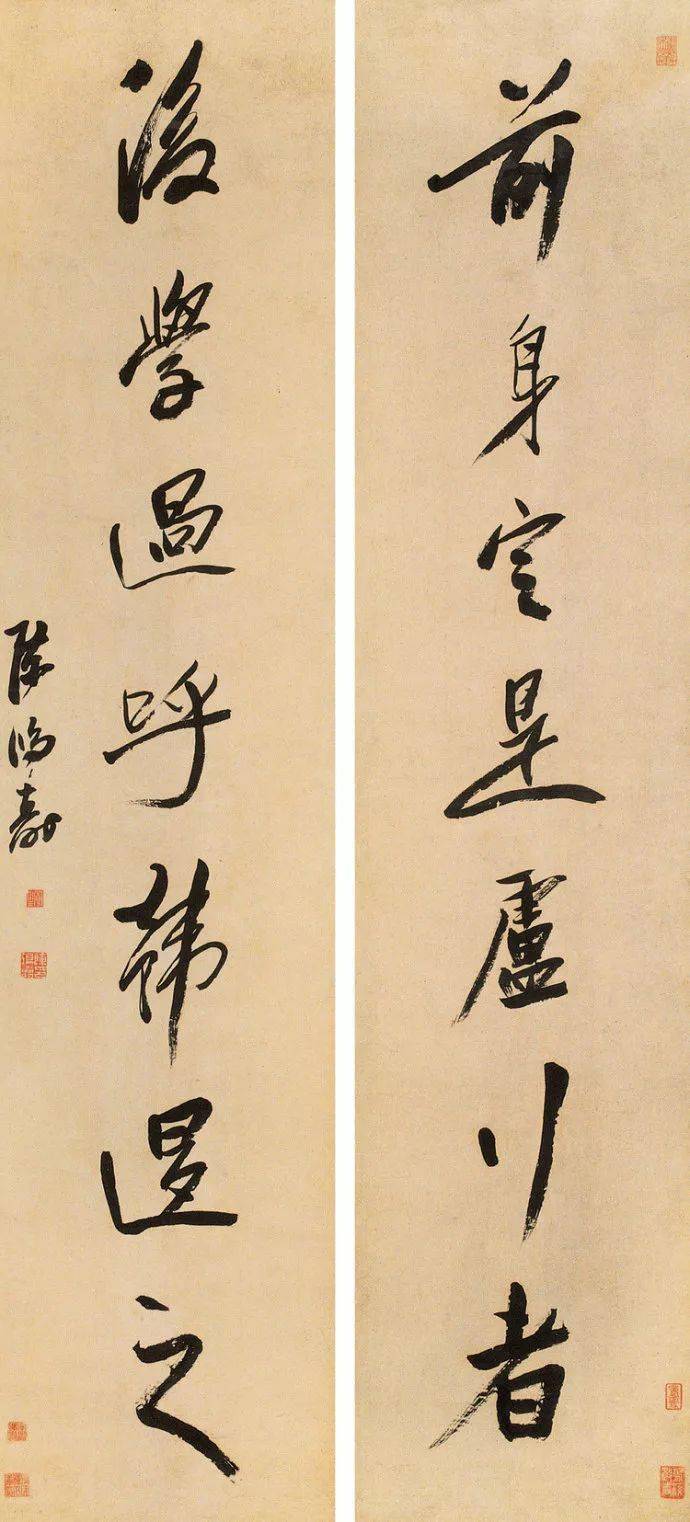 前身定是盧行者
後學過呼韓退之
陳鴻壽